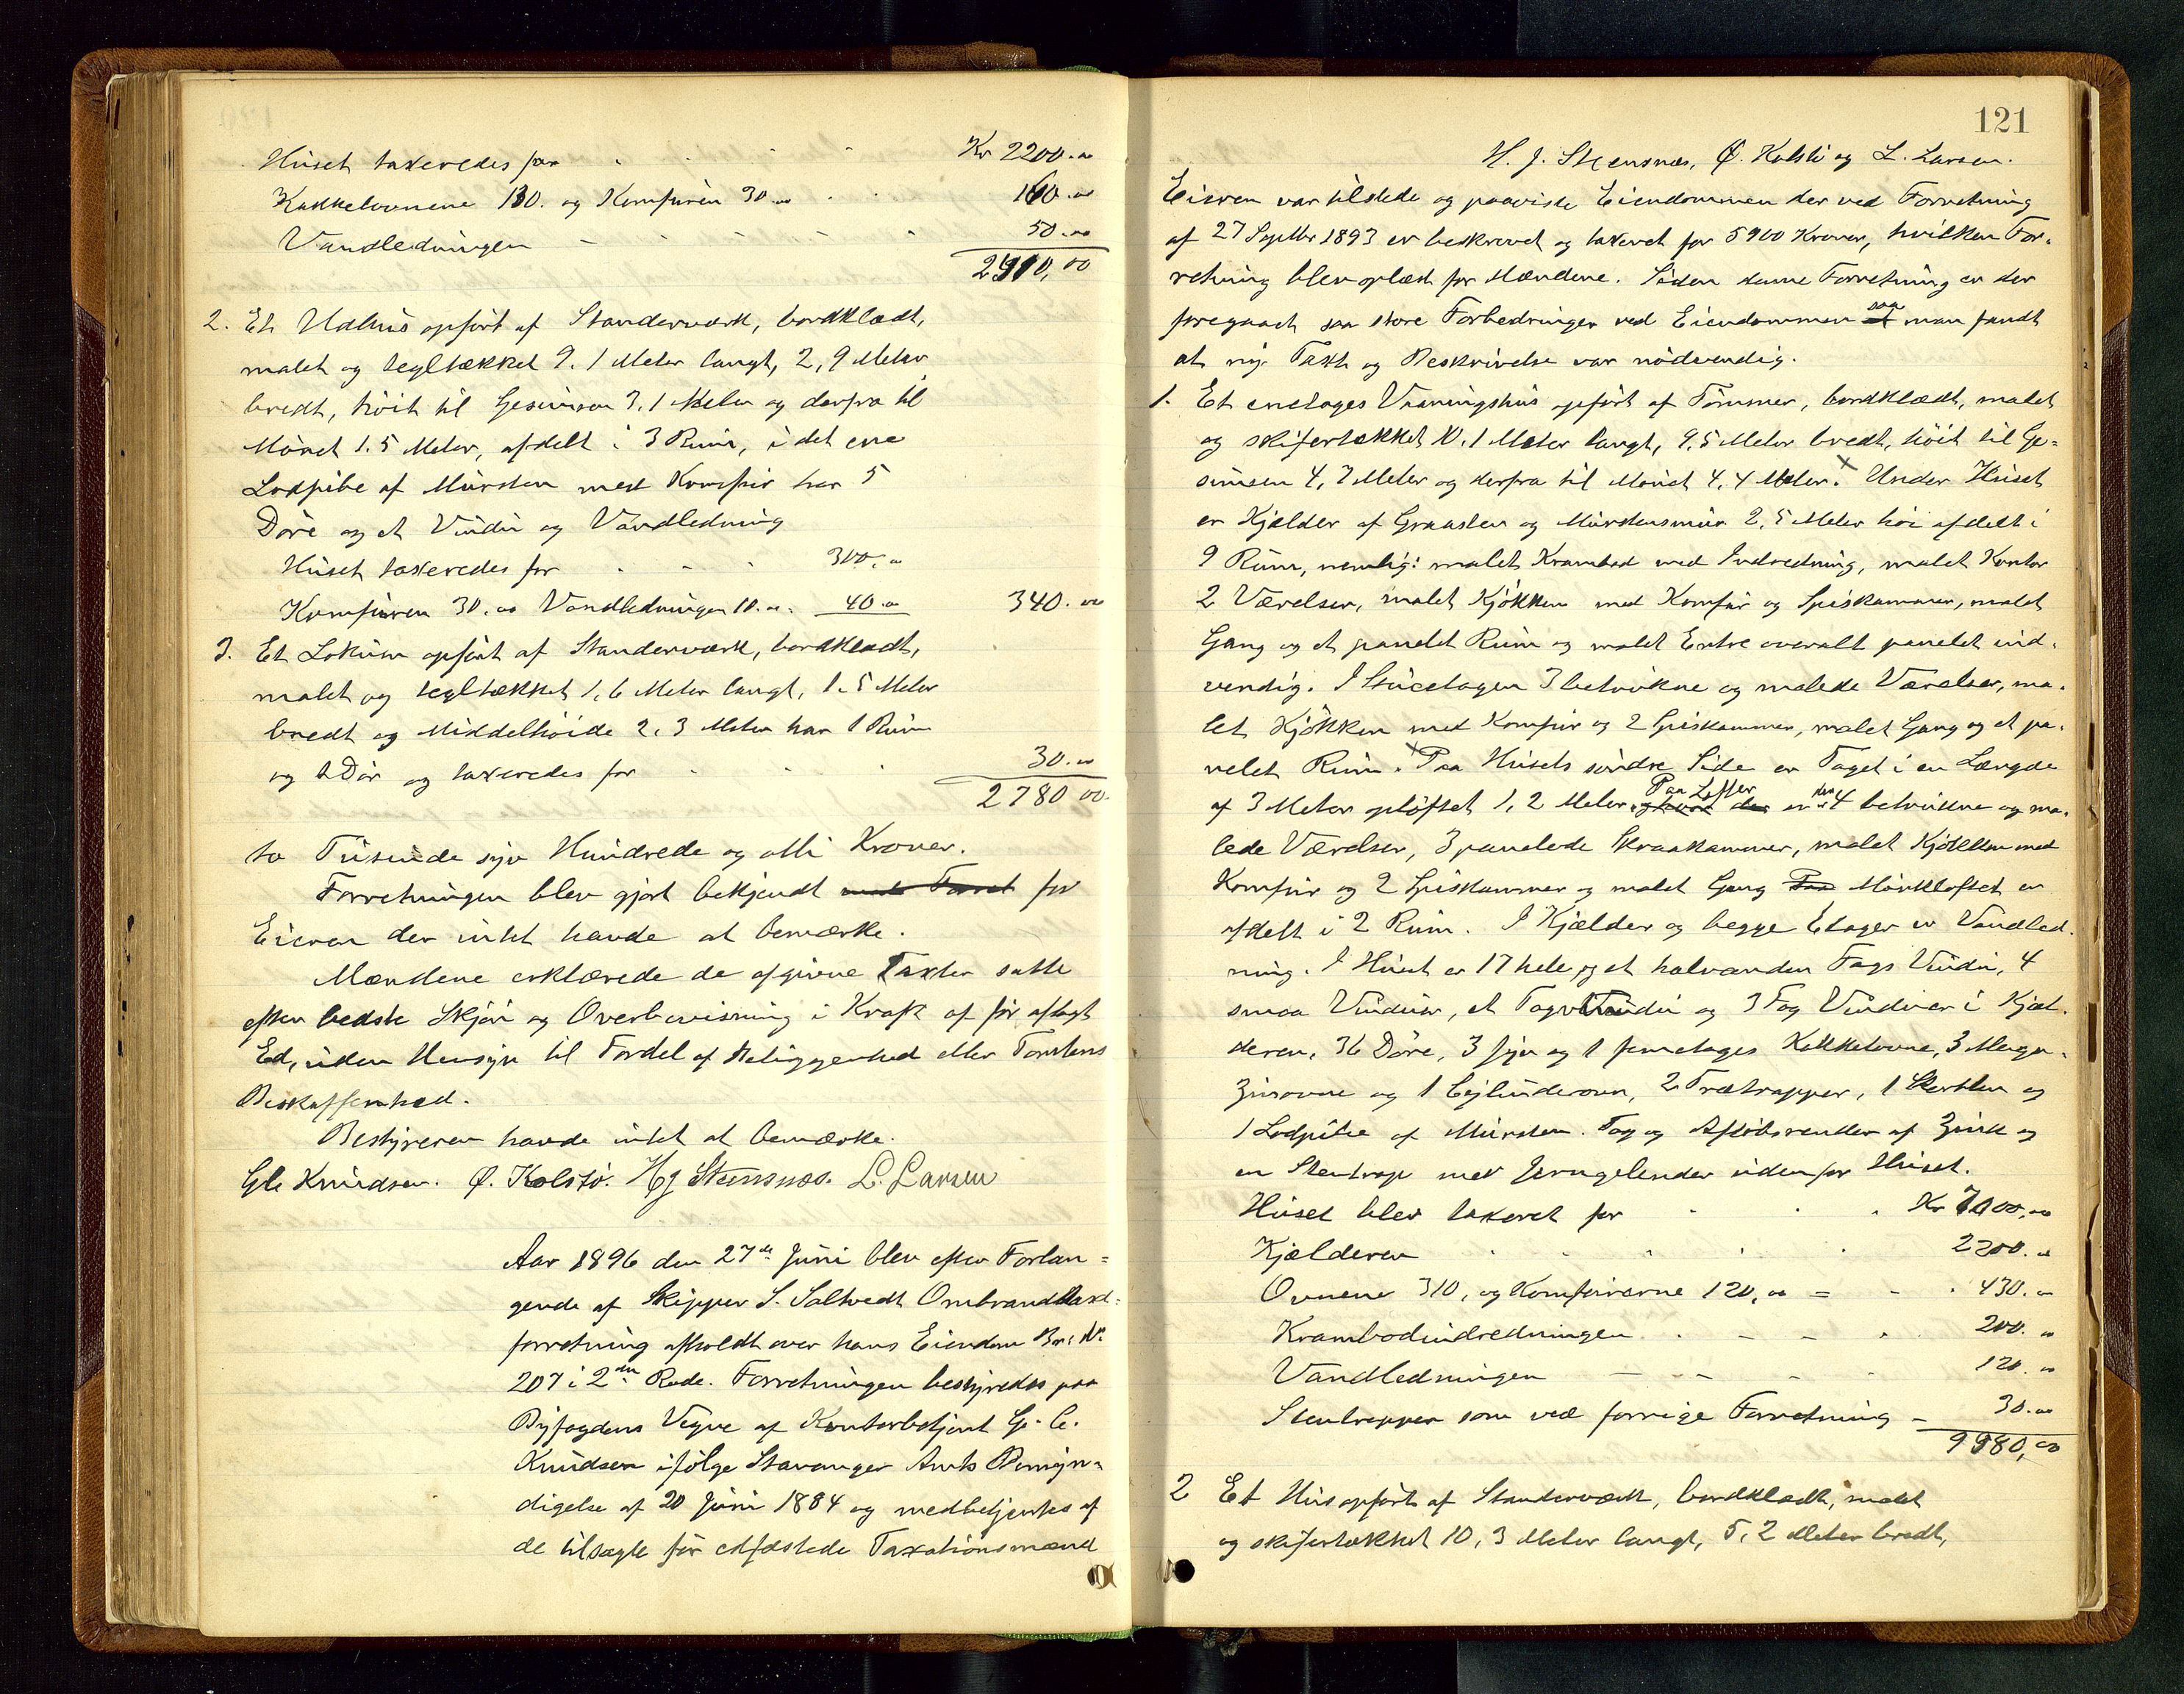 Huset taxeredes for Kr 2200.00
Kakkelovnene 130. og Komfuren 30.00 160.00
Vandledningen 50.00
2410,00
2. Et Udhus opført af Standerværk, bordklædt,
malet og tegltækket 9.1 Meter langt, 2,9 Meter
bredt, höit til Gesimsen 3,1 Meter og derfra til
Mönet 1.5 Meter, afdelt i 3 Rum, i det ene
Lodpibe af Mursten med Komfur har 5
Döre og et Vindu og Vandledning
Huset taxeredes for 300,00
Komfuren 30.00 Vandledningen 10.00. 40.00 340.00
3. Et Lokum opfört af Standerværk, bordklædt,
malet og tegltækket 1,6 Meter langt, 1.5 Meter
bredt og Middelhöide 2,3 Meter har 1 Rum
og 1 Dör og taxeredes for 30.00
2780 00.
to Tusinde syv Hundrede og otti Kroner.
Forretningen blev gjort bekjendt for
Eieren der intet havde at bemærke.
Mændene erklærede de afgivne Taxter satte
efter bedste Skjön og Overbevisning i Kraft af för aflagt
Ed, uden Hensyn til Fordel af Beliggenhed eller Tomtens
Beskaffenhed.
Bestyreren havde intet at bemærke.
Gle Knudsen. Ø. Kolstø. Hj Steensnæs. L. Larsen
Aar 1896 den 27de Juni blev efter Forlan=
gende af Skipper S. Saltvedt Ombrandtaxt=
forretning afholdt over hans Eiendom Br: No
207 i 2den Rode. Forretningen bestyredes paa
Byfogdens Vegne af Kontorbetjent G. C.
Knudsen ifölge Stavanger Amts Bemyn=
digelse af 20 Juni 1884 og medbetjentes af
de tilsagte för edfæstede Taxationsmænd
121
H. J. Steensnæs, Ø. Kolstö og L. Larsen.
Eieren var tilstede og paaviste Eiendommen der ved Forretning
af 27 Septbr 1893 er beskrevet og taxeret for 5900 Kroner, hvilken For=
retning blev oplæst for Mændene. Siden denne Forretning er der
foregaaet saa store Forbedringer ved Eiendommen saa man fandt
at ny Taxt og Beskrivelse var nödvendig.
1. Et enetages Vaaningshus opfört af Tömmer, bordklædt, malet
og skifertækket 10.1 Meter langt, 9.5 Meter bredt, höit til Ge=
simsen 4,7 Meter og derfra til Mönet 4,4 Meter. x Under Huset
er Kjælder af Graasten og Murstensmur 2,5 Meter höi afdelt i
9 Rum, nemlig: malet Krambod med Indredning, malet Kontor
2 Værelser, malet Kjökken med Komfur og Spiskammer, malet
Gang og et panelet Rum og malet Entre overalt panelet ind=
vendig. I Stueetagen 3 betrukne og malede Værelser, ma=
let Kjökken med Komfur og 2 Spiskammer, malet Gang og et pa=
nelet Rum. x Paa Husets söndre Side er Taget i en Længde
af 3 Meter oplöftet 1,2 Meter. Paa Loftet er der 4 betrukne og ma=
lede Værelser, 3 panelede Skraakammer, malet Kjökken med
Komfur og 2 Spiskammer og malet Gang Mörkloftet er
afdelt i 2 Rum. I Kjælder og begge Etager er Vandled=
ning. I Huset er 17 hele og et halvanden Fags Vindu, 4
smaa Vinduer, et Tagvindu og 3 Fag Vinduer i Kjæl=
deren, 36 Döre, 3 fyr og 1 femetages Kakkelovne, 3 Maga=
zinovne og 1 Cylinderovn, 2 Trætrapper, 1 Skorsten og
1 Lodpibe af Mursten. Tag og Aflöbsrender af Zink og
en Stentrap med Jerngelender udenfor Huset.
Huset blev taxeret for Kr 7000,00
Kjælderen 2200.00
Ovnene 310, og Komfurerne 120,00 = 430.00
Krambodindredningen 200.00
Vandledningen 120.00
Stentrappen som ved forrige Forretning - 30.00
9980,00
2 Et Hus opfört af Standerværk, bordklædt, malet
og skifertækket 10,3 Meter langt, 5,2 Meter bredt,